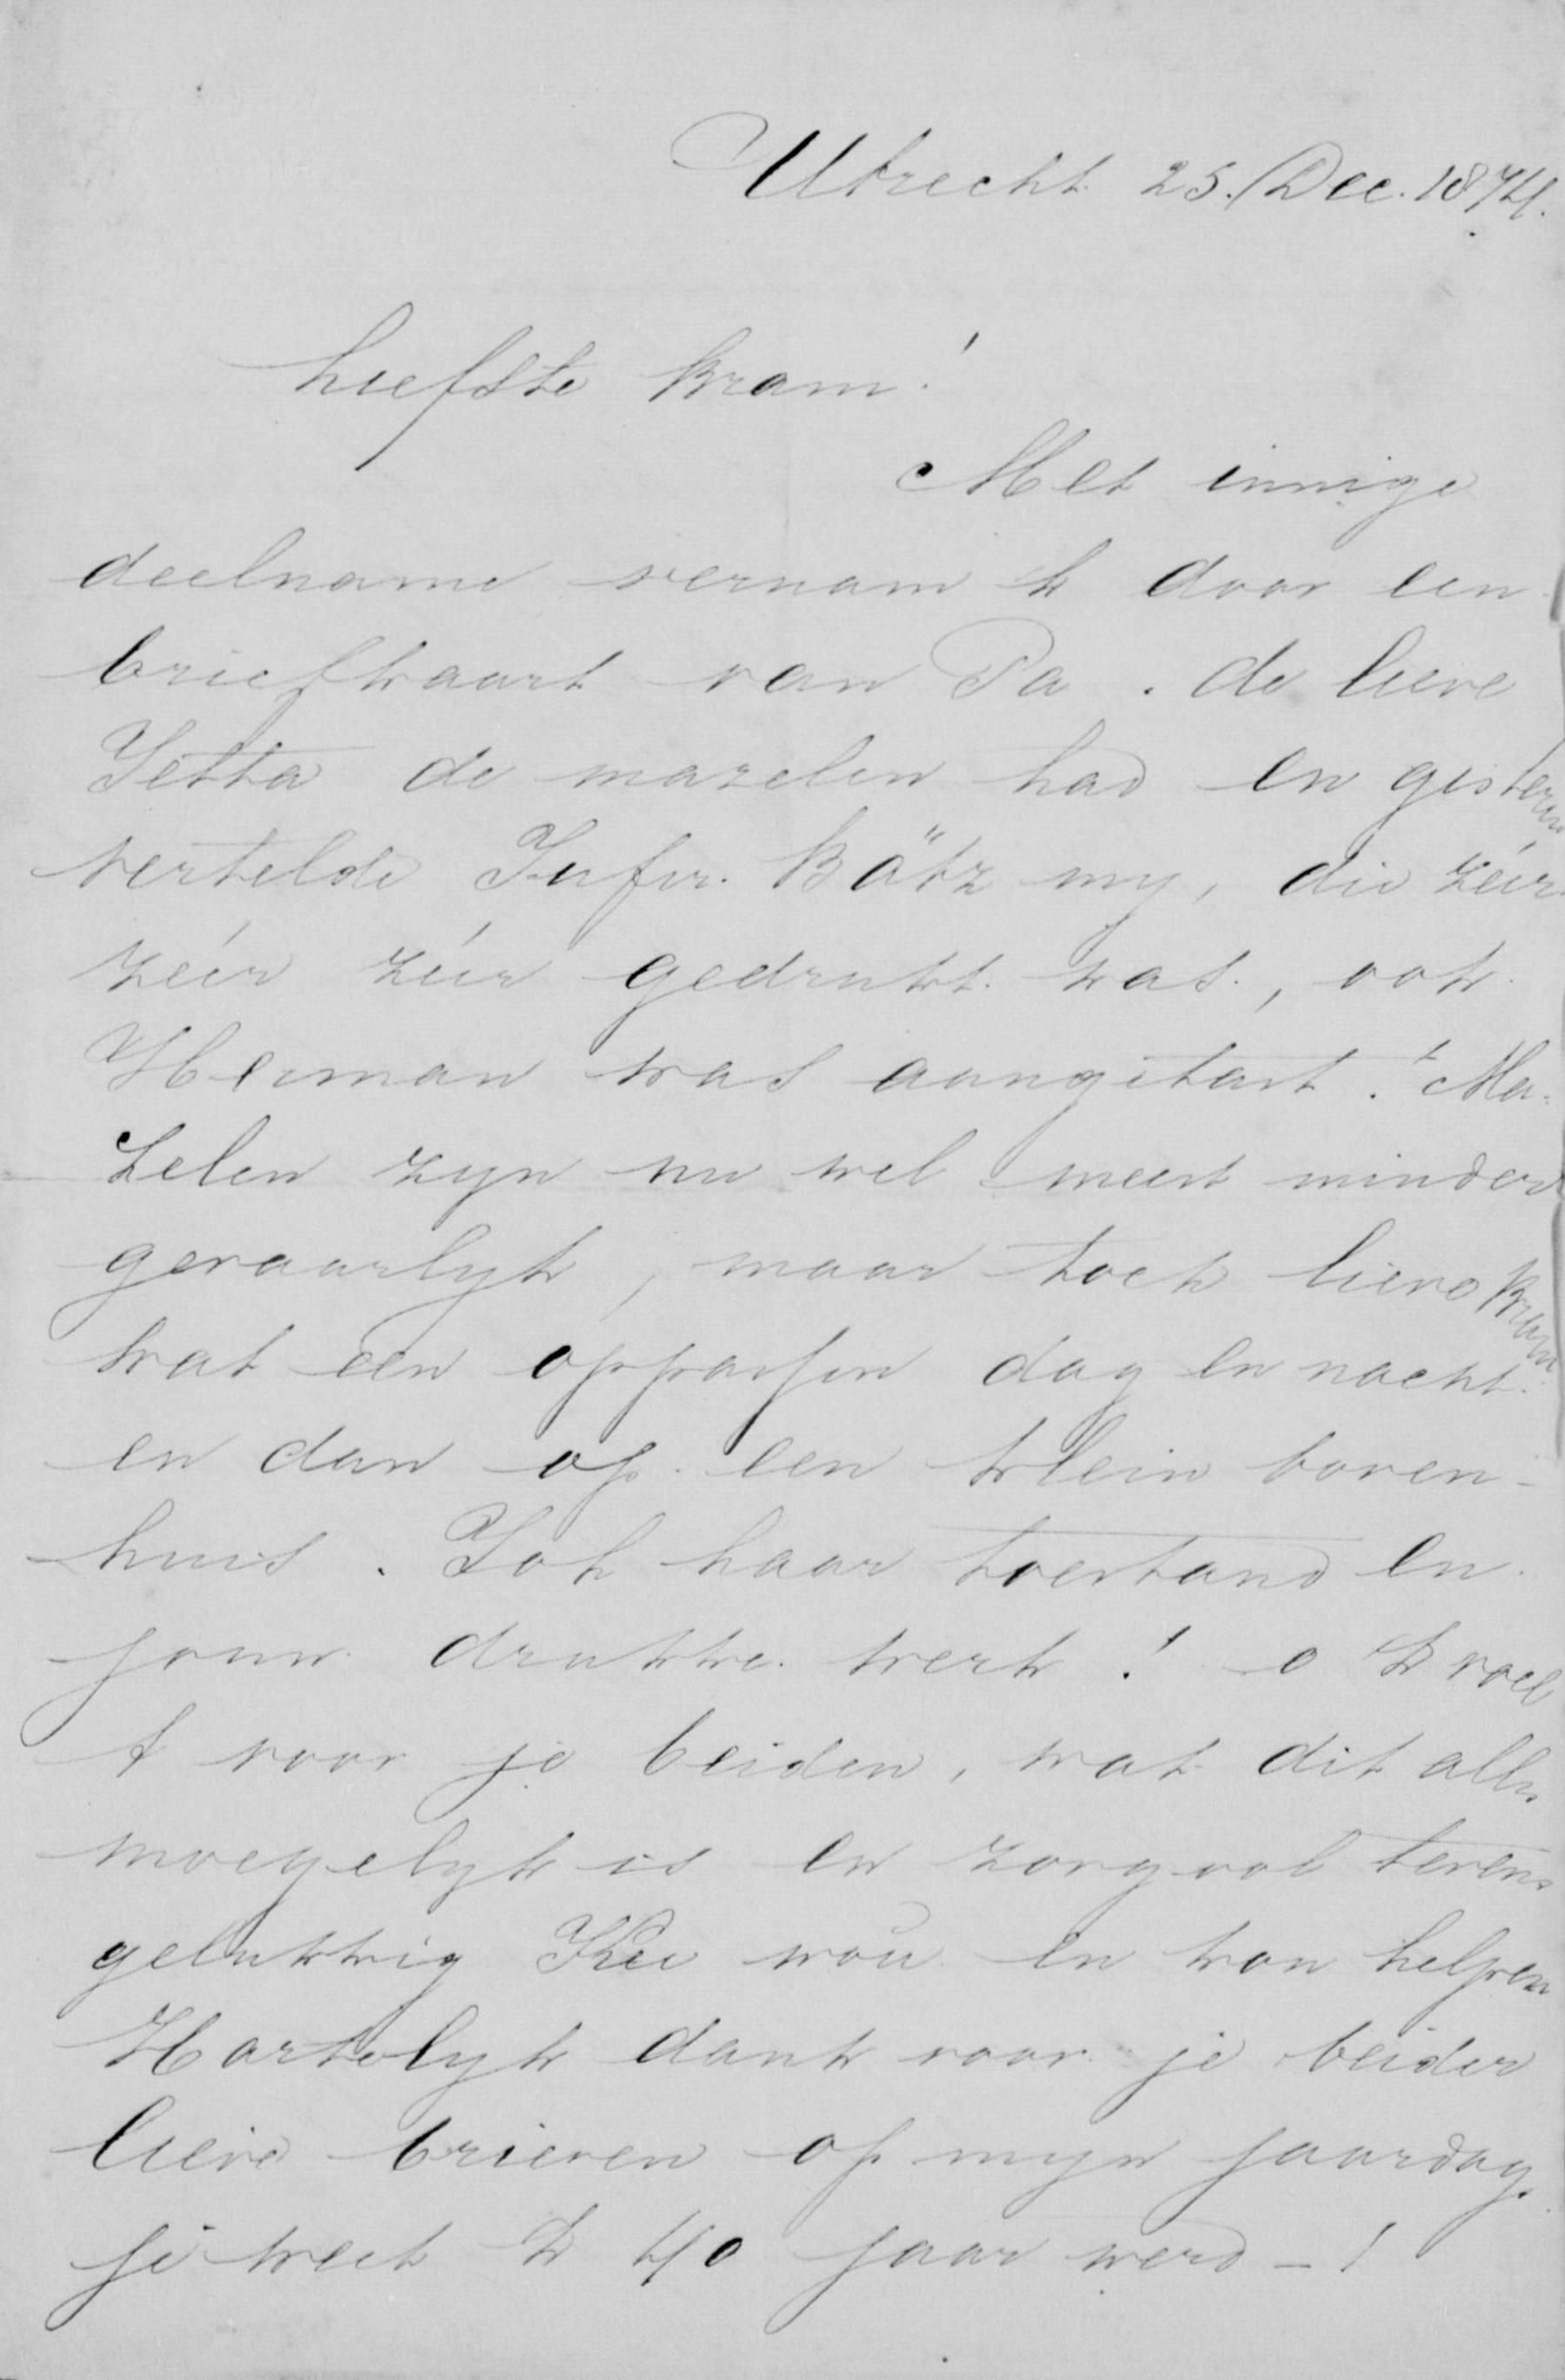 Utrecht 25. Dec. 1874.
Liefste Bram!
Met innige
deelname vernam k door een
briefkaart van Pa. de lieve
Jetta de mazelen had en gisteren
vertelde Jufvr. Bätz my, die zéér
zéér zéér gedrukt was, ook
Herman was aangetast. 't Ma-
zelen zyn nu wel meest minder
gevaarlyk, maar toch lieve Bram
wat een oppassen dag en nacht.
en dan op een klein boven-
huis. Joh haar toestand en
jouw drukke werk! o k voel
t voor je beiden, wat dit alles
moeyelyk is en zorgvol tevens
gelukkig Kee wou en kon helpen
Hartelyk dank voor je beider
lieve brieven op myn jaardag.
je weet k 40 jaar werd -!